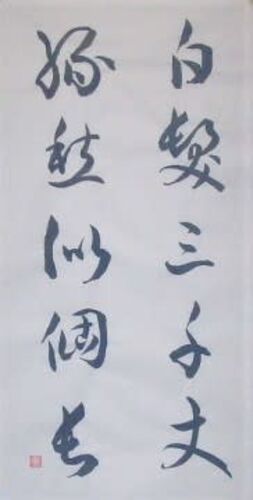 白髮三千丈
緣愁似個長